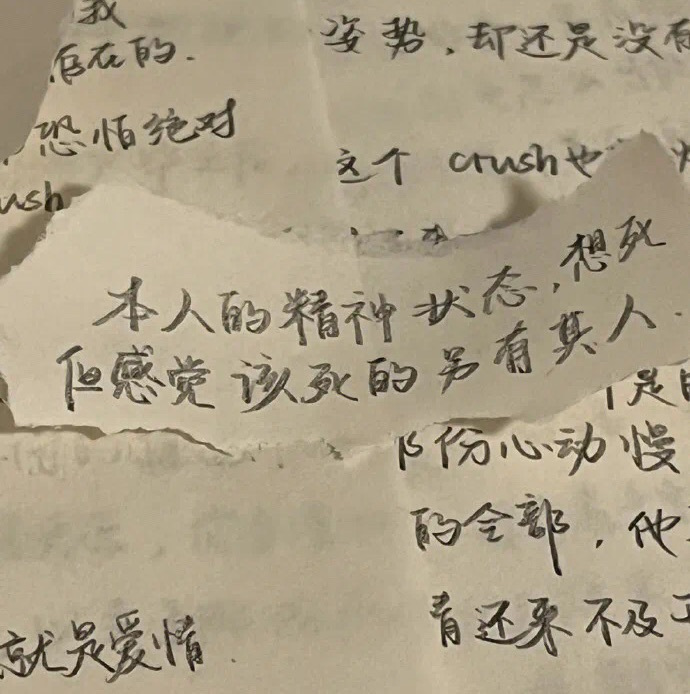 我
存在的.
姿势，却还是没有
恐怕绝对
这个 crush也
ush
本人的精神状态，想死
但感觉该死的另有其人.
是
份心动慢
的全部，他
青还来不及
就是爱情.